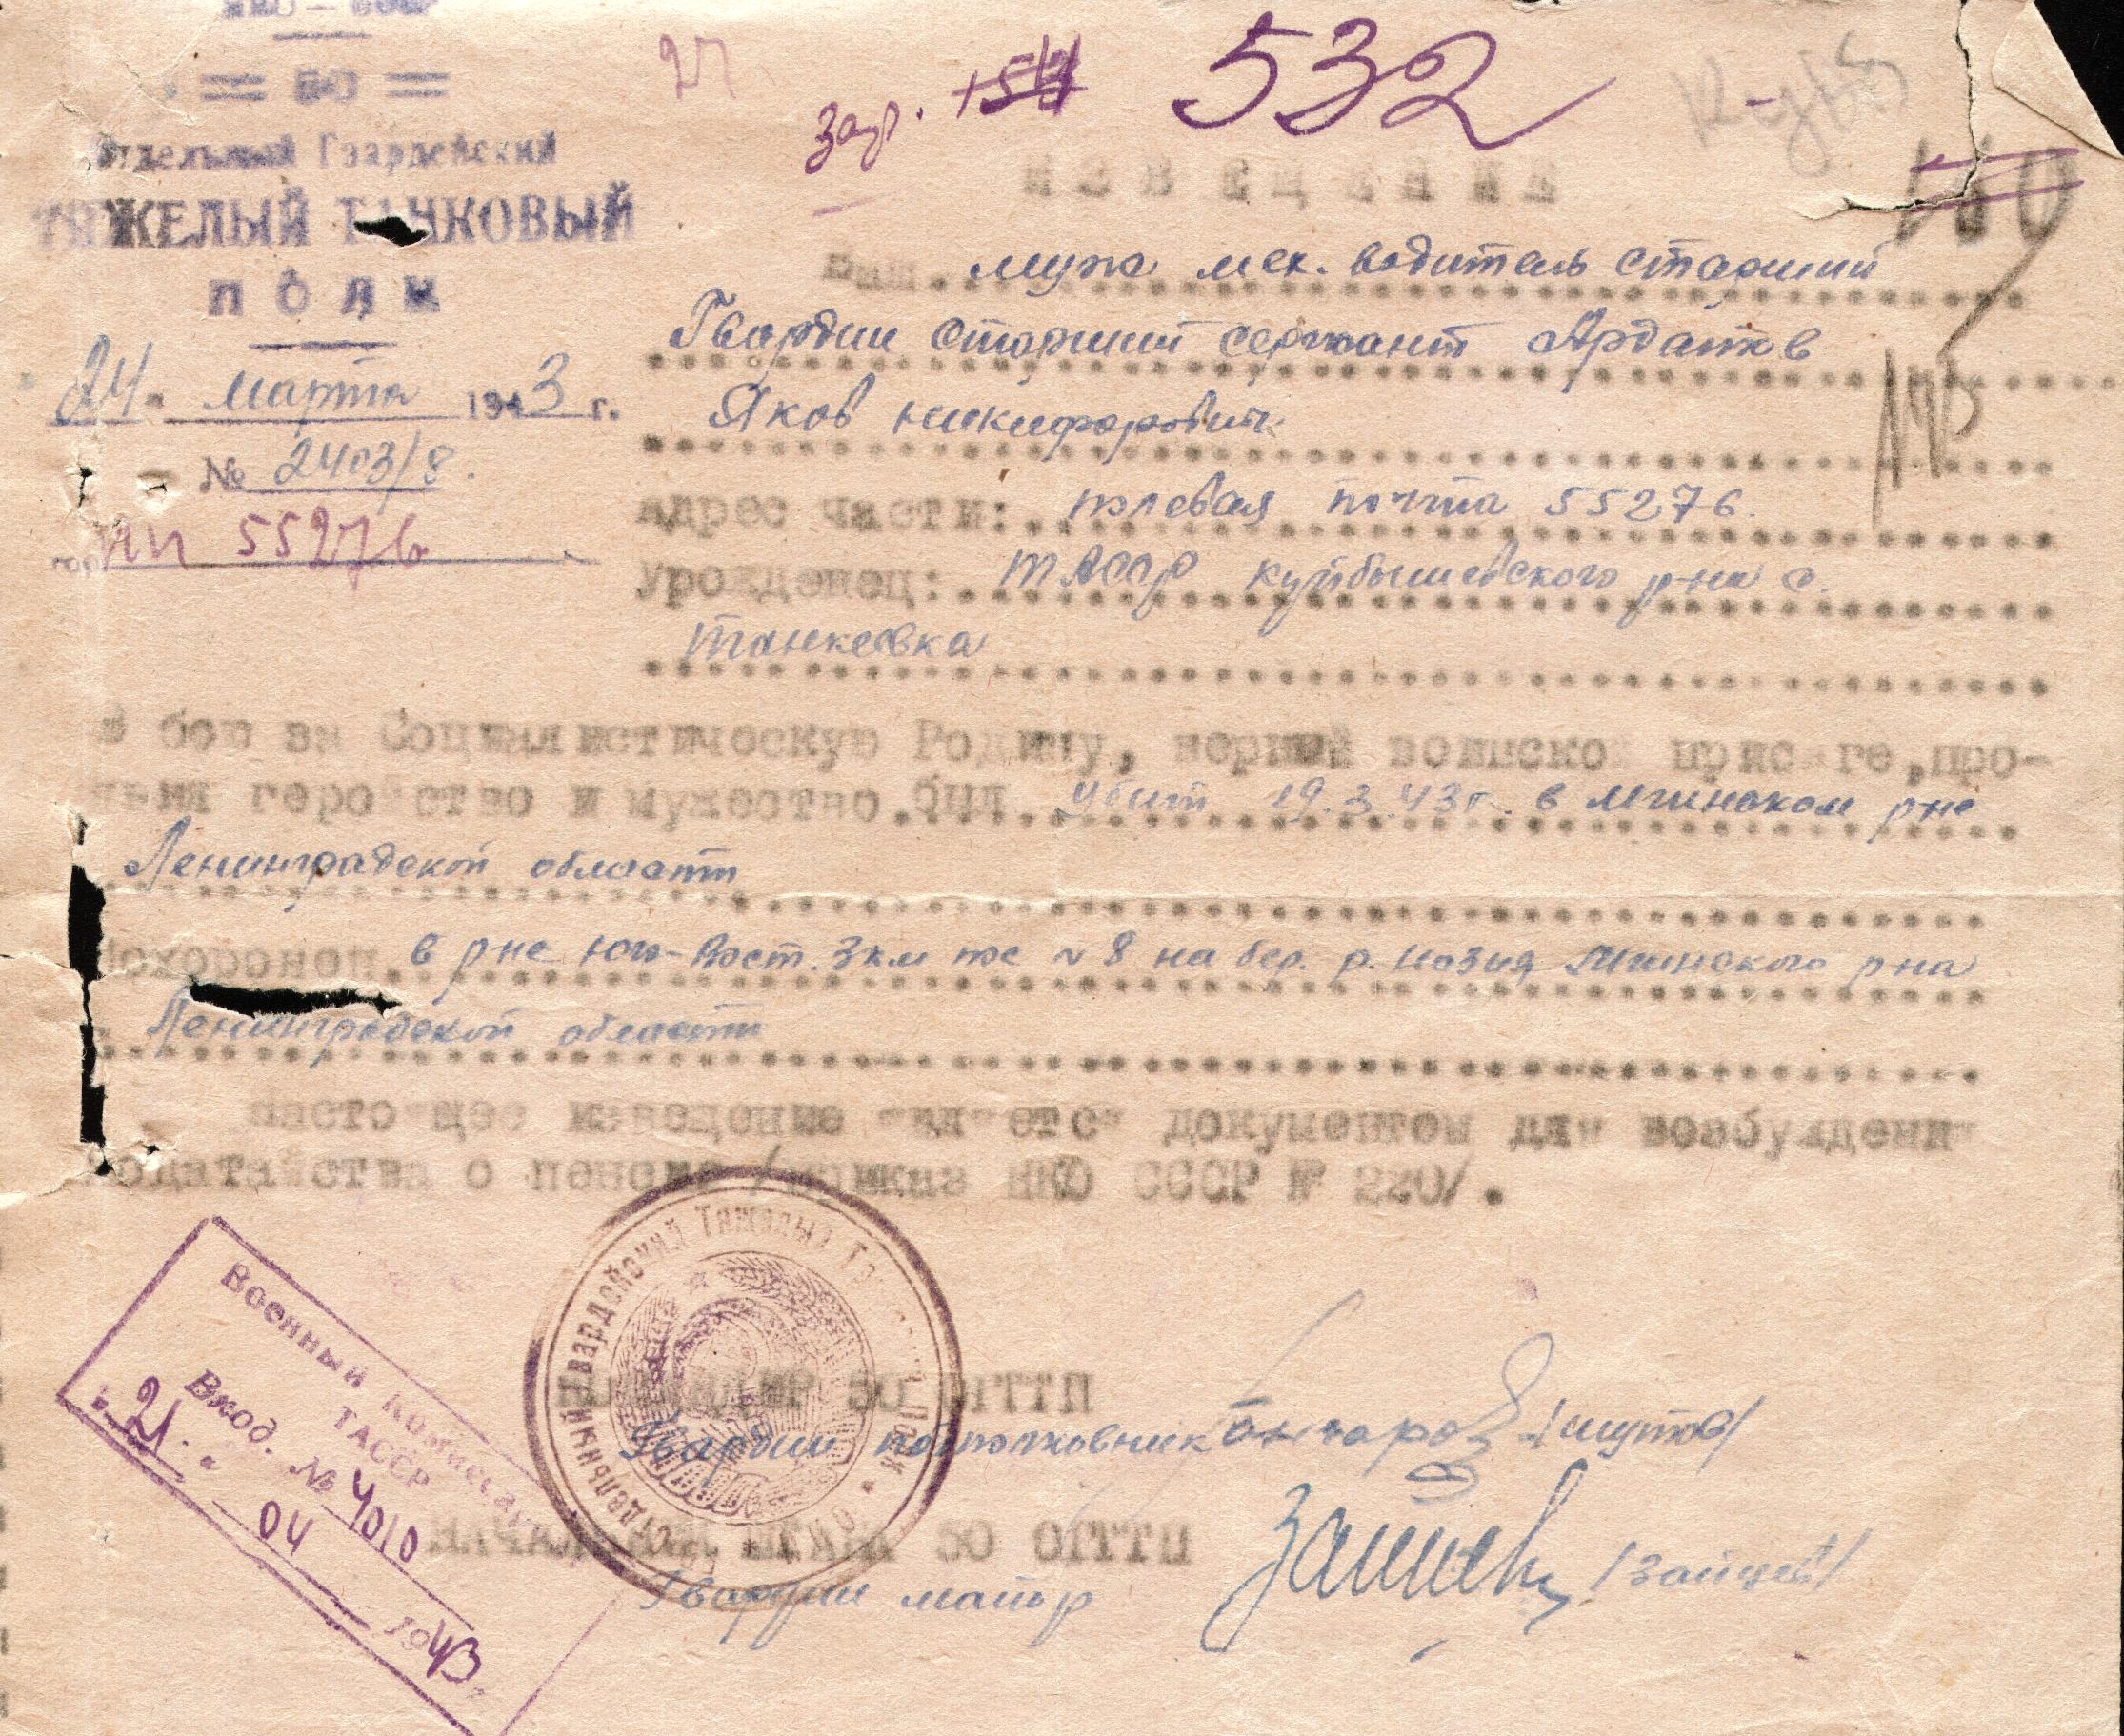 НКО – СССР
= 50 =
Отдельный Гвардейский
ТЯЖЕЛЫЙ ТАНКОВЫЙ
ПОЛК
24. марта 1943 г.
№ 2403/8.
ПП 55276
27
532
110
ИЗВЕЩЕНИЕ
Ваш. муж мех. водитель старший
Гвардии старший сержант Ардатов
Яков Никифорович
Адрес части: полевая почта 55276.
Урожденец: ТАССР куйбышевского р-на с.
Танкеевка
В бою за Социалистическую Родину, верный воинской присяге, про-
явил геройство и мужество. был. убит 19.3.43 г. в Мгинском рне
Ленинградской области
Похоронен. в рне Юго-Вост. 3 км № 8 на бер. р. Назия Мгинского рна
Ленинградской области
Настоящее извещение является документом для возбуждения
ходатайства о пенсии /приказ НКО СССР № 220/.
Отдельный Гвардейский Тяжелый Танковый Полк
КОМАНДИР 50 ОГТТП
Гвардии подполковник
НАЧАЛЬНИК ШТАБА 50 ОГТТП
Гвардии майор Зайцев /Зайцев/
Военный Комиссариат
ТАССР
Вход. № 4010
„21“ 04 1943 г.